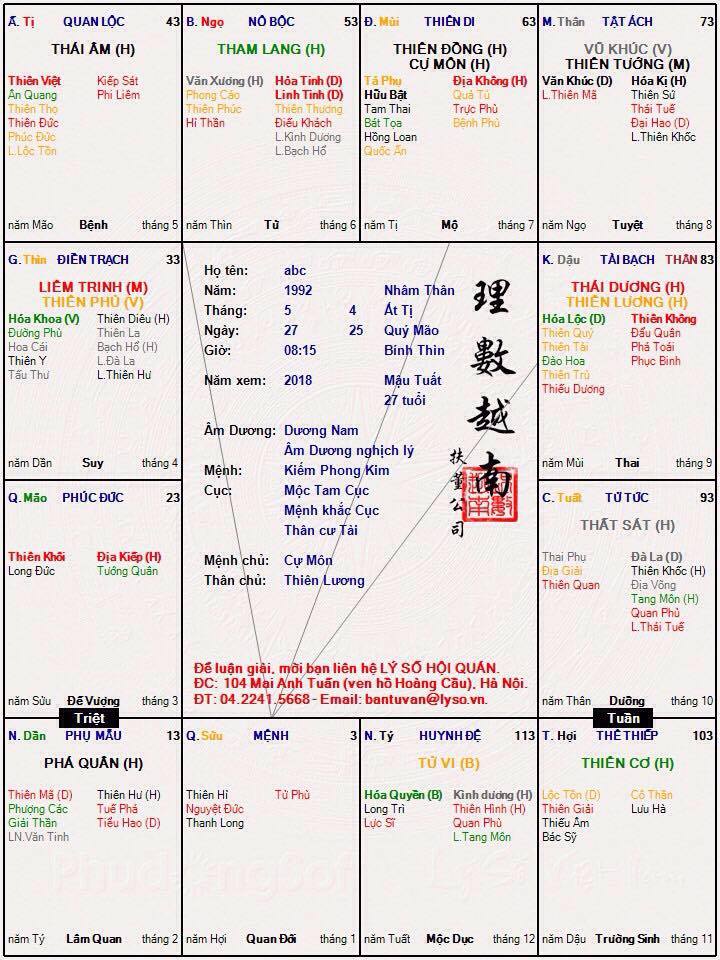 Ấ. Tị QUAN LỘC 43
THÁI ÂM (H)
Thiên Việt Kiếp Sát
Ân Quang Phi Liêm
Thiên Thọ
Thiên Đức
Phúc Đức
L.Lộc Tồn
năm Mão Bệnh tháng 5
B. Ngọ NÔ BỘC 53
THAM LANG (H)
Văn Xương (H) Hỏa Tinh (D)
Phong Cáo Linh Tinh (D)
Thiên Phúc Thiên Thương
Hỉ Thần Điếu Khách
L.Kình Dương
L.Bạch Hổ
năm Thìn Tử tháng 6
Đ. Mùi THIÊN DI 63
THIÊN ĐỒNG (H)
CỰ MÔN (H)
Tả Phụ Địa Không (H)
Hữu Bật Quả Tú
Tam Thai Trực Phù
Bát Tọa Bệnh Phù
Hồng Loan
Quốc Ấn
năm Tị Mộ tháng 7
M. Thân TẬT ÁCH 73
VŨ KHÚC (V)
THIÊN TƯỚNG (M)
Văn Khúc (D) Hóa Kị (H)
L.Thiên Mã Thiên Sứ
Thái Tuế
Đại Hao (D)
L.Thiên Khốc
năm Ngọ Tuyệt tháng 8
G. Thìn ĐIỀN TRẠCH 33
LIÊM TRINH (M)
THIÊN PHỦ (V)
Hóa Khoa (V) Thiên Diêu (H)
Đường Phù Thiên La
Hoa Cái Bạch Hổ (H)
Thiên Y L.Đà La
Tấu Thư L.Thiên Hư
năm Dần Suy tháng 4
Họ tên: abc
Năm: 1992 Nhâm Thân
Tháng: 5 4 Ất Tị
Ngày: 27 25 Quý Mão
Giờ: 08:15 Bính Thìn
Năm xem: 2018 Mậu Tuất
27 tuổi
Âm Dương: Dương Nam
Âm Dương nghịch lý
Mệnh: Kiếm Phong Kim
Cục: Mộc Tam Cục
Mệnh khắc Cục
Thân cư Tài
Mệnh chủ: Cự Môn
Thân chủ: Thiên Lương
理數越南
扶董公司
Để luận giải, mời bạn liên hệ LÝ SỐ HỘI QUÁN.
ĐC: 104 Mai Anh Tuấn (ven hồ Hoàng Cầu), Hà Nội.
ĐT: 04.2241.5668 - Email: bantuvan@lyso.vn.
K. Dậu TÀI BẠCH THÂN 83
THÁI DƯƠNG (H)
THIÊN LƯƠNG (H)
Hóa Lộc (D) Thiên Không
Thiên Quý Đẩu Quân
Thiên Tài Phá Toái
Đào Hoa Phục Binh
Thiên Trù
Thiếu Dương
năm Mùi Thai tháng 9
Q. Mão PHÚC ĐỨC 23
Thiên Khôi Địa Kiếp (H)
Long Đức Tướng Quân
năm Sửu Đế Vượng tháng 3
C. Tuất TỬ TỨC 93
THẤT SÁT (H)
Thai Phụ Đà La (D)
Địa Giải Thiên Khốc (H)
Thiên Quan Địa Võng
Tang Môn (H)
Quan Phủ
L.Thái Tuế
năm Thân Dưỡng tháng 10
Triệt
Tuần
N. Dần PHỤ MẪU 13
PHÁ QUÂN (H)
Thiên Mã (D) Thiên Hư (H)
Phượng Các Tuế Phá
Giải Thần Tiểu Hao (D)
LN.Văn Tinh
năm Tý Lâm Quan tháng 2
Q. Sửu MỆNH 3
Thiên Hỉ Tử Phù
Nguyệt Đức
Thanh Long
năm Hợi Quan Đới tháng 1
N. Tý HUYNH ĐỆ 113
TỬ VI (B)
Hóa Quyền (B) Kình dương (H)
Long Trì Thiên Hình (H)
Lực Sĩ Quan Phù
L.Tang Môn
năm Tuất Mộc Dục tháng 12
T. Hợi THÊ THIẾP 103
THIÊN CƠ (H)
Lộc Tồn (D) Cô Thần
Thiên Giải Lưu Hà
Thiếu Âm
Bác Sỹ
năm Dậu Trường Sinh tháng 11